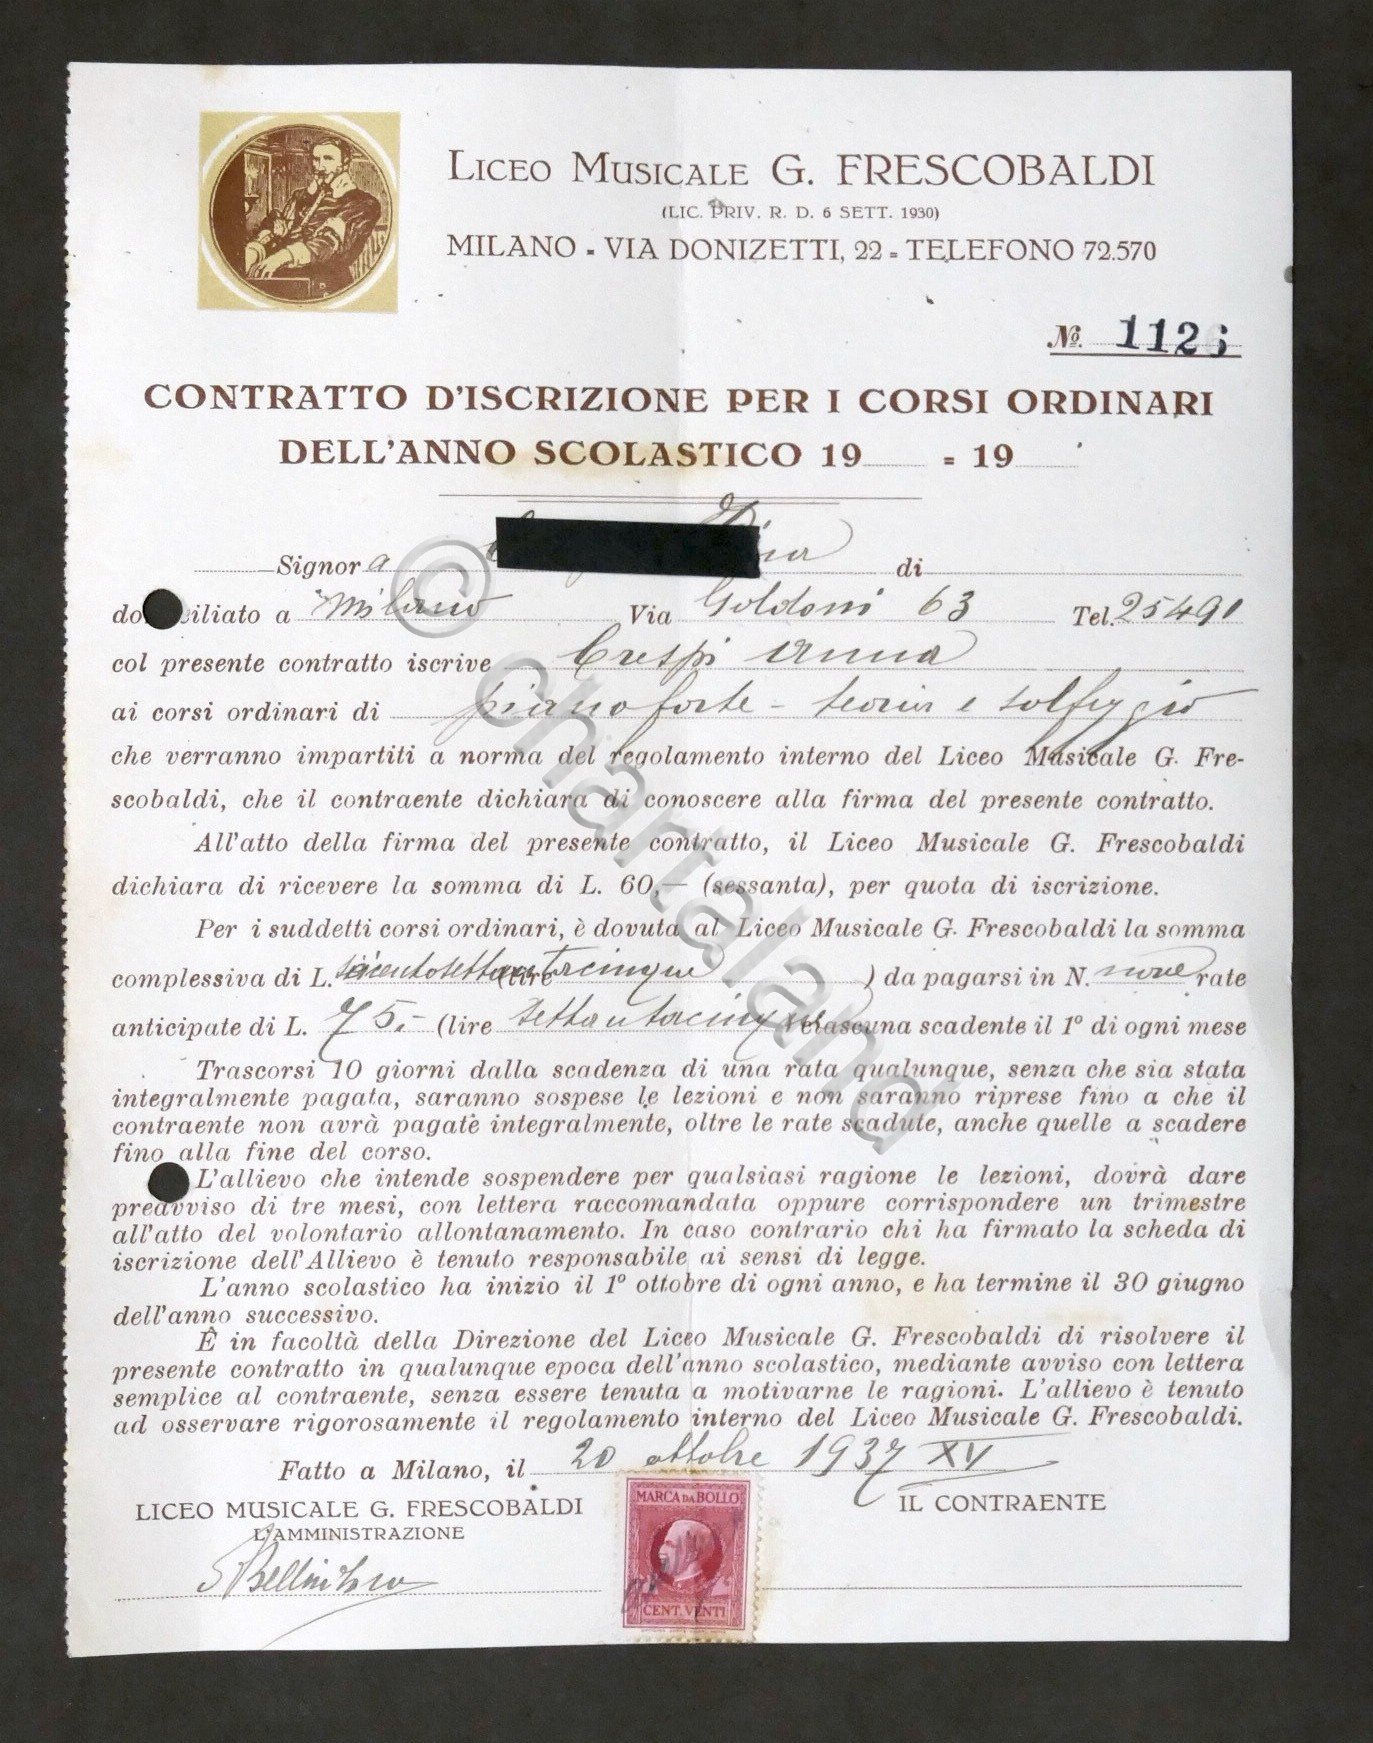 LICEO MUSICALE G. FRESCOBALDI
(LIC. PRIV. R. D. 6 SETT. 1930)
MILANO - VIA DONIZETTI, 22 - TELEFONO 72.570
No. 1126
CONTRATTO D'ISCRIZIONE PER I CORSI ORDINARI
DELL'ANNO SCOLASTICO 19 = 19
Signor a di
do iliato a Milano Via Goldoni 63 Tel. 25491
col presente contratto iscrive Crespi Anna
ai corsi ordinari di pianoforte - teoria e solfeggio
che verranno impartiti a norma del regolamento interno del Liceo Musicale G. Fre-
scobaldi, che il contraente dichiara di conoscere alla firma del presente contratto.
All'atto della firma del presente contratto, il Liceo Musicale G. Frescobaldi
dichiara di ricevere la somma di L. 60,— (sessanta), per quota di iscrizione.
Per i suddetti corsi ordinari, è dovuta al Liceo Musicale G. Frescobaldi la somma
complessiva di L. seicentosettantacinque (lire ) da pagarsi in N. nove rate
anticipate di L. 75.- (lire settantacinque ) ciascuna scadente il 1º di ogni mese
Trascorsi 10 giorni dalla scadenza di una rata qualunque, senza che sia stata
integralmente pagata, saranno sospese le lezioni e non saranno riprese fino a che il
contraente non avrà pagate integralmente, oltre le rate scadute, anche quelle a scadere
fino alla fine del corso.
L'allievo che intende sospendere per qualsiasi ragione le lezioni, dovrà dare
preavviso di tre mesi, con lettera raccomandata oppure corrispondere un trimestre
all'atto del volontario allontanamento. In caso contrario chi ha firmato la scheda di
iscrizione dell'Allievo è tenuto responsabile ai sensi di legge.
L'anno scolastico ha inizio il 1º ottobre di ogni anno, e ha termine il 30 giugno
dell'anno successivo.
È in facoltà della Direzione del Liceo Musicale G. Frescobaldi di risolvere il
presente contratto in qualunque epoca dell'anno scolastico, mediante avviso con lettera
semplice al contraente, senza essere tenuta a motivarne le ragioni. L'allievo è tenuto
ad osservare rigorosamente il regolamento interno del Liceo Musicale G. Frescobaldi.
Fatto a Milano, il 20 ottobre 1937 XV
LICEO MUSICALE G. FRESCOBALDI
L'AMMINISTRAZIONE
IL CONTRAENTE
MARCA DA BOLLO
CENT. VENTI
© chartaland